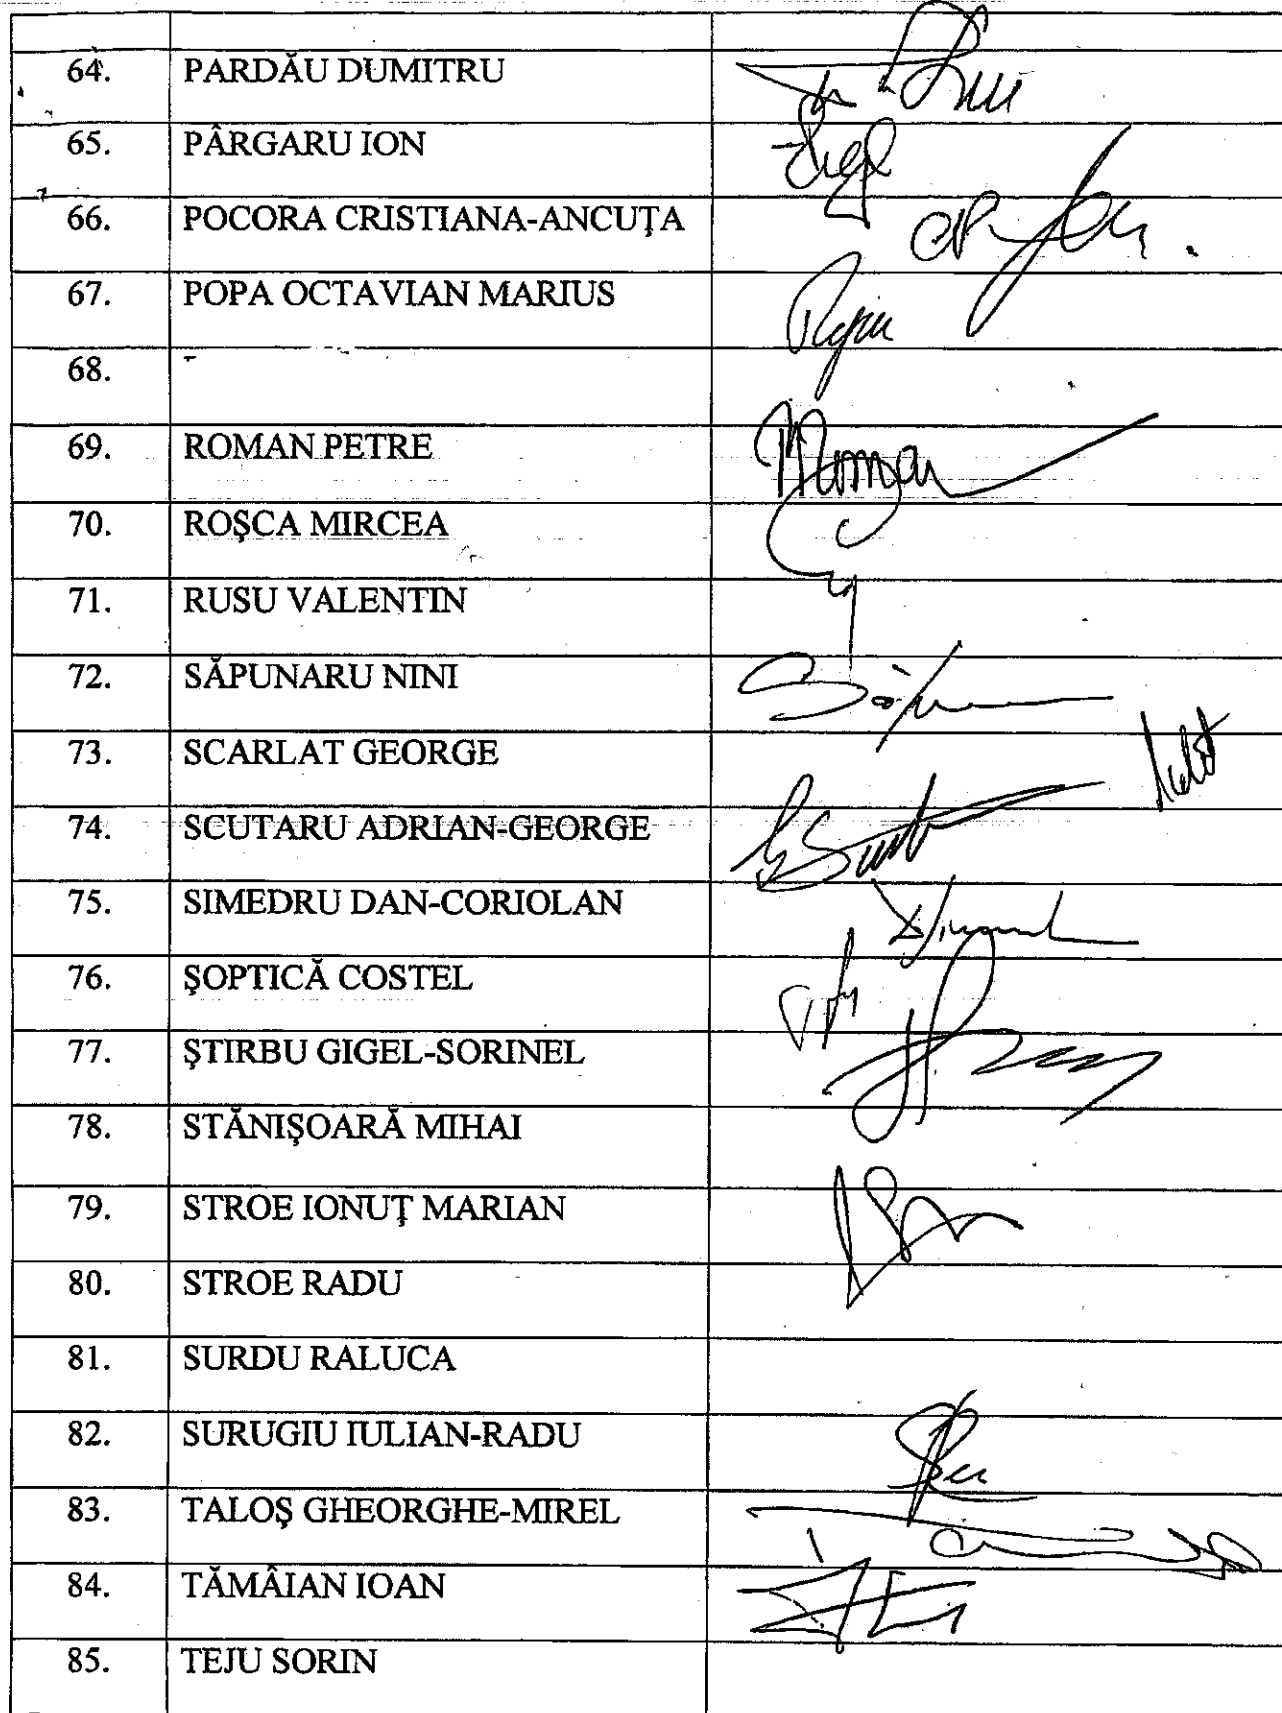 64. PARDĂU DUMITRU
65. PÂRGARU ION
66. POCORA CRISTIANA-ANCUŢA
67. POPA OCTAVIAN MARIUS
68.
69. ROMAN PETRE
70. ROŞCA MIRCEA
71. RUSU VALENTIN
72. SĂPUNARU NINI
73. SCARLAT GEORGE
74. SCUTARU ADRIAN-GEORGE
75. SIMEDRU DAN-CORIOLAN
76. ŞOPTICĂ COSTEL
77. ŞTIRBU GIGEL-SORINEL
78. STĂNIŞOARĂ MIHAI
79. STROE IONUŢ MARIAN
80. STROE RADU
81. SURDU RALUCA
82. SURUGIU IULIAN-RADU
83. TALOŞ GHEORGHE-MIREL
84. TĂMÂIAN IOAN
85. TEJU SORIN